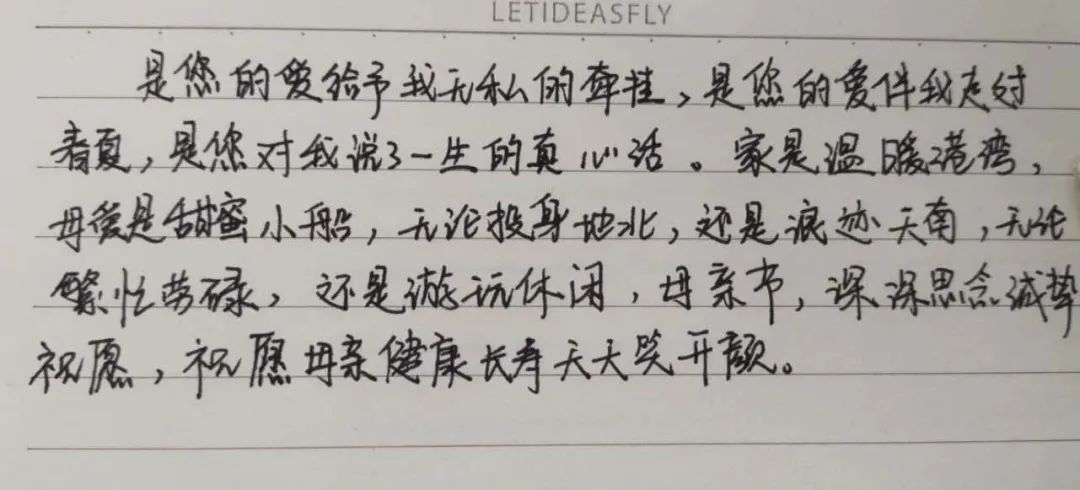 LETIDEASFLY
是您的爱给予我无私的牵挂，是您的爱伴我走过
春夏，是您对我说了一生的真心话。家是温暖港湾，
母爱是甜蜜小船，无论投身地北，还是浪迹天南，无论
繁忙劳碌，还是游玩休闲，母亲节，深深思念诚挚
祝愿，祝愿母亲健康长寿天天笑开颜。